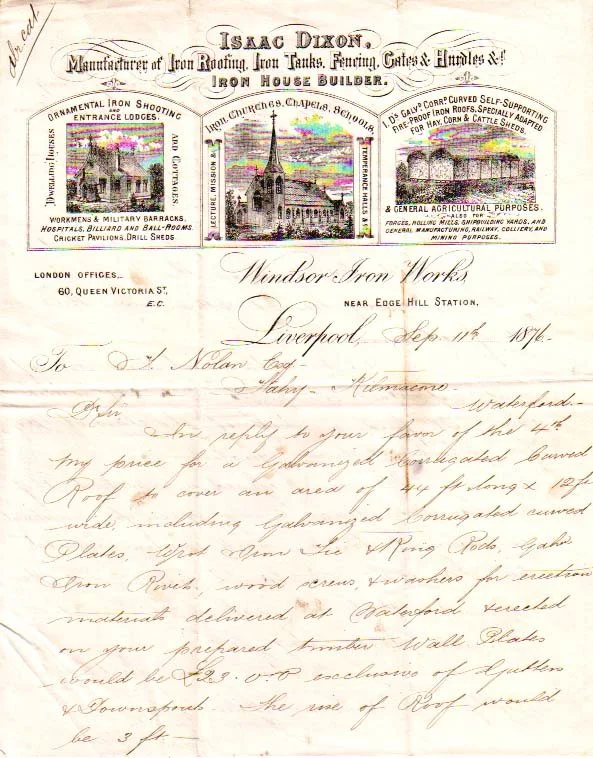 ISAAC DIXON,
Manufacturer of Iron Roofing, Iron Tanks, Fencing, Gates & Hurdles &c
IRON HOUSE BUILDER.
ORNAMENTAL IRON SHOOTING
AND
ENTRANCE LODGES.
DWELLING HOUSES
AND COTTAGES.
WORKMENS & MILITARY BARRACKS.
HOSPITALS, BILLIARD AND BALL-ROOMS.
CRICKET PAVILIONS, DRILL SHEDS
IRON CHURCHES, CHAPELS, SCHOOLS,
LECTURE, MISSION &
TEMPERANCE HALLS &c
I. DS GALVD CORRD CURVED SELF-SUPPORTING
FIRE-PROOF IRON ROOFS, SPECIALLY ADAPTED
FOR HAY, CORN & CATTLE SHEDS.
& GENERAL AGRICULTURAL PURPOSES.
ALSO FOR
FORGES, ROLLING MILLS, SHIPBUILDING YARDS, AND
GENERAL MANUFACTURING, RAILWAY, COLLIERY, AND
MINING PURPOSES.
LONDON OFFICES,
60, QUEEN VICTORIA ST,
E.C.
Windsor Iron Works,
NEAR EDGE HILL STATION,
Liverpool, Sep. 11th 1876
To Nolan Esq
Waterford
D Sir
In reply to your favor of the 4th
my price for a Galvanized Corrugated Curved
Roof to cover an area of 44 ft long x 12 ft
wide, including Galvanized Corrugated curved
Plates, Wrot Iron Tie & King Rods, Galvd
Iron Rivets, wood screws, & washers for erection
materials delivered at Waterford & erected
on your prepared timber Wall Plates
would be £23.0.0 exclusive of Gutters
& Downspouts. The rise of Roof would
be 3 ft